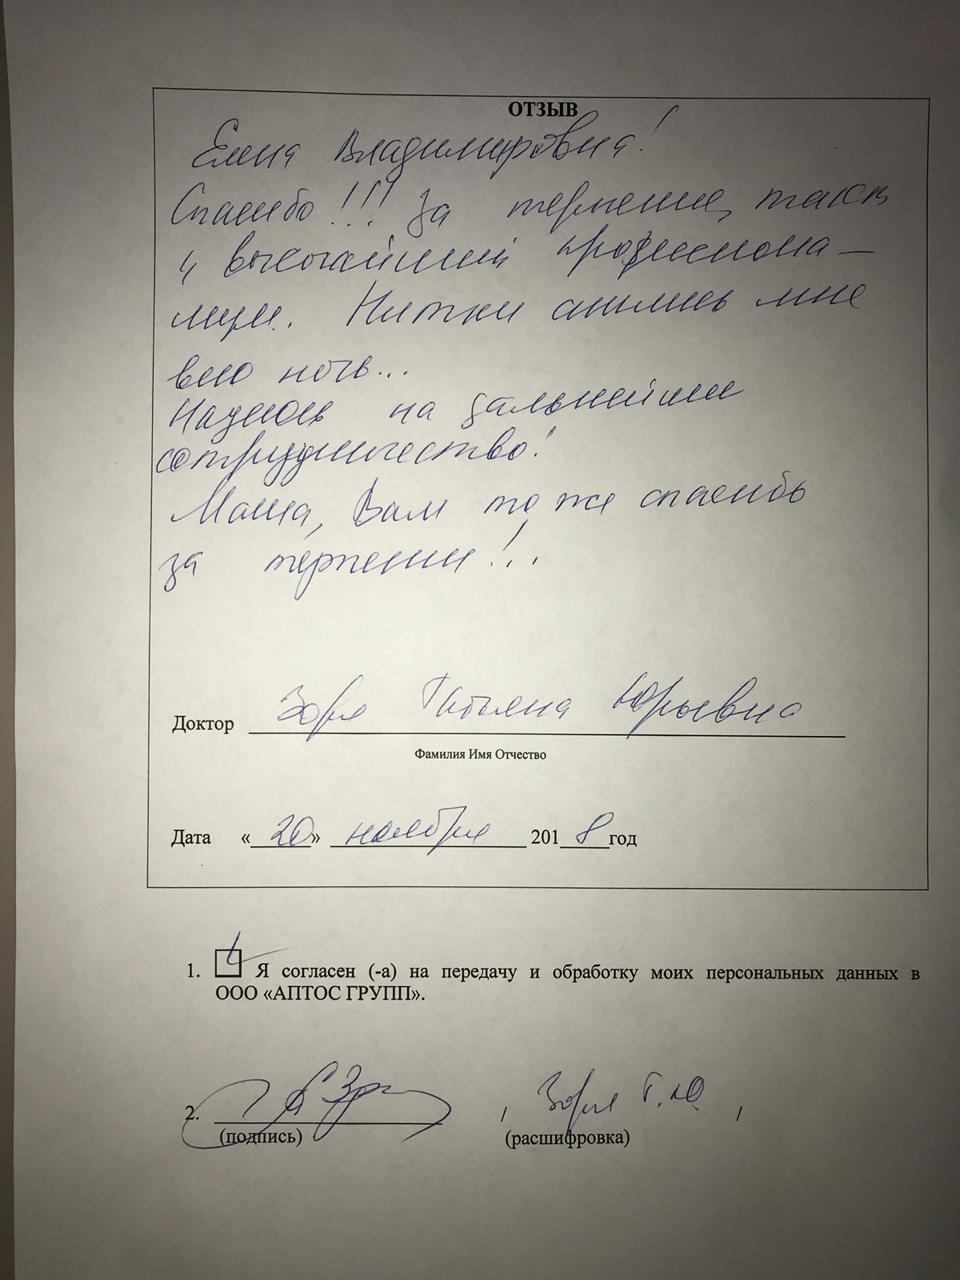 ОТЗЫВ
Елена Владимировна!
Спасибо!!! За терпение, такт
и высочайший профессиона-
лизм. Нитки снились мне
всю ночь...
Надеюсь на дальнейшее
сотрудничество!
Маша, Вам то же спасибо
за терпение!..
Доктор Зоря Татьяна Юрьевна
Фамилия Имя Отчество
Дата «20» ноября 2018 год
1. Я согласен (-а) на передачу и обработку моих персональных данных в
ООО «АПТОС ГРУПП».
2. , Зоря Т.Ю ,
(подпись) (расшифровка)